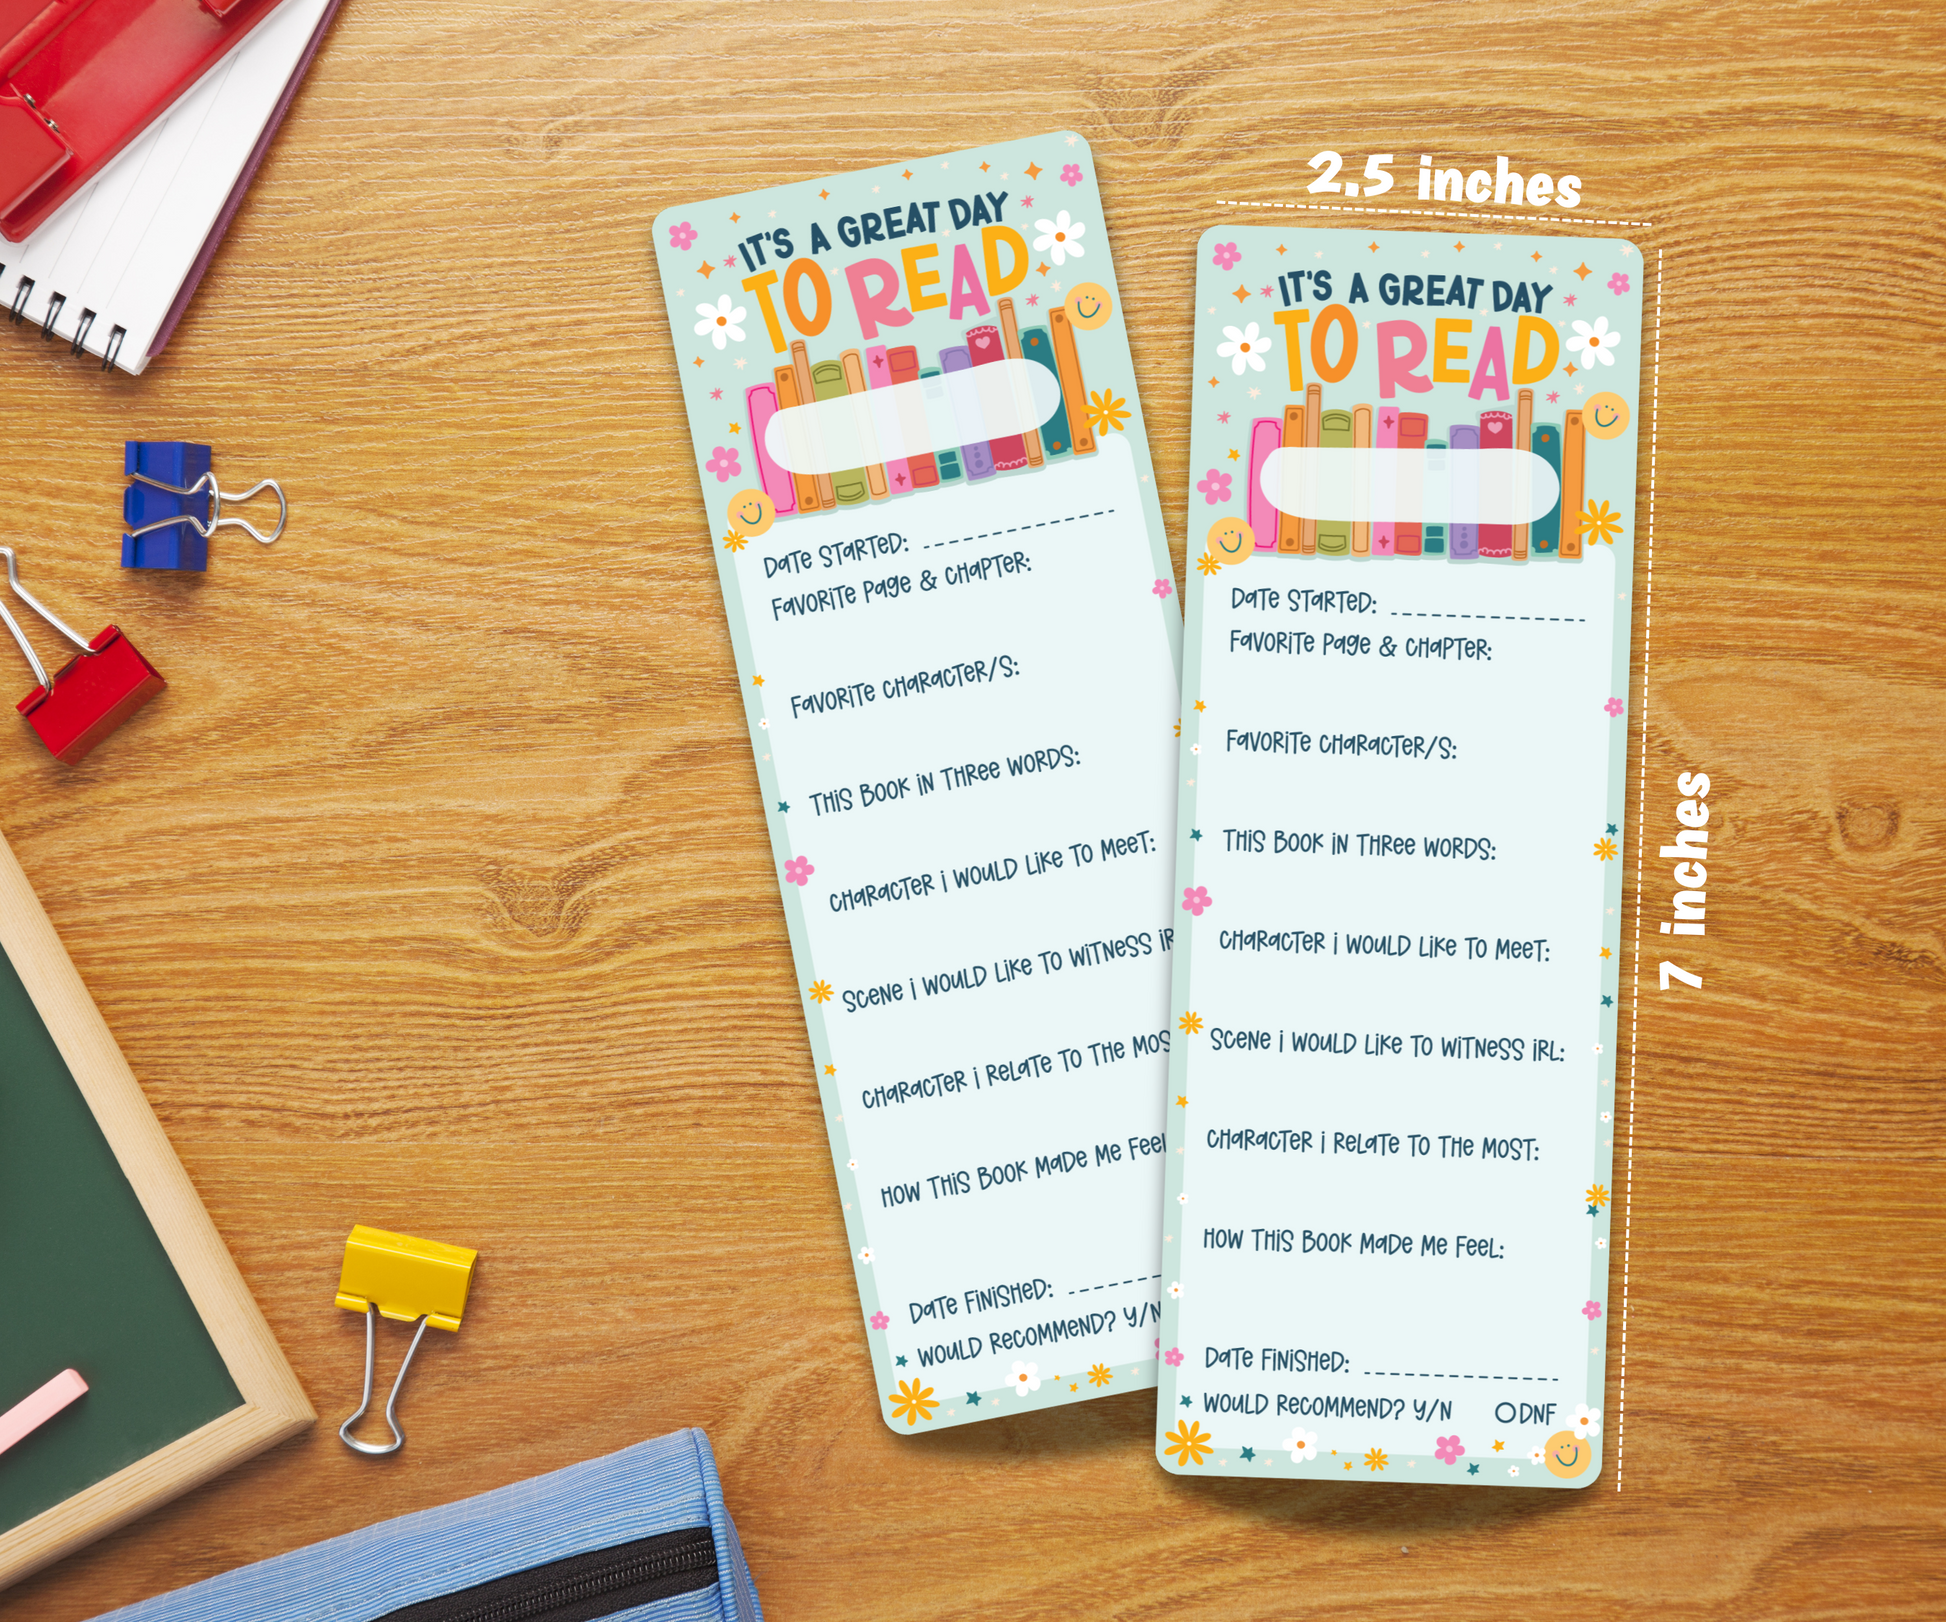 IT'S A GREAT DAY
TO READ
DATE STARTED:
FAVORITE PAGE & CHAPTER:
FAVORITE CHARACTER/S:
THIS BOOK IN THREE WORDS:
CHARACTER I WOULD LIKE TO MEET:
SCENE I WOULD LIKE TO WITNESS IR
CHARACTER I RELATE TO THE MOS
HOW THIS BOOK MADE ME FEEL
DATE FINISHED:
WOULD RECOMMEND? Y/N
2.5 inches
IT'S A GREAT DAY
TO READ
DATE STARTED:
FAVORITE PAGE & CHAPTER:
FAVORITE CHARACTER/S:
THIS BOOK IN THREE WORDS:
CHARACTER I WOULD LIKE TO MEET:
SCENE I WOULD LIKE TO WITNESS IRL:
CHARACTER I RELATE TO THE MOST:
HOW THIS BOOK MADE ME FEEL:
DATE FINISHED:
WOULD RECOMMEND? Y/N DNF
7 inches